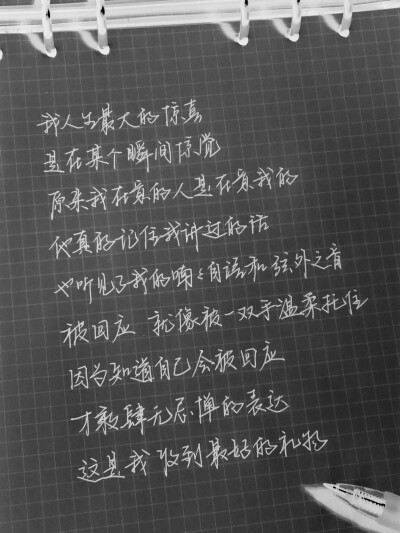 我人生最大的惊喜
是在某个瞬间惊觉
原来我在意的人是在意我的
他真的记住我讲过的话
也听见了我的喃喃自语和弦外之音
被回应 就像被一双手温柔托住
因为知道自己会被回应
才敢肆无忌惮的表达
这是我收到最好的礼物